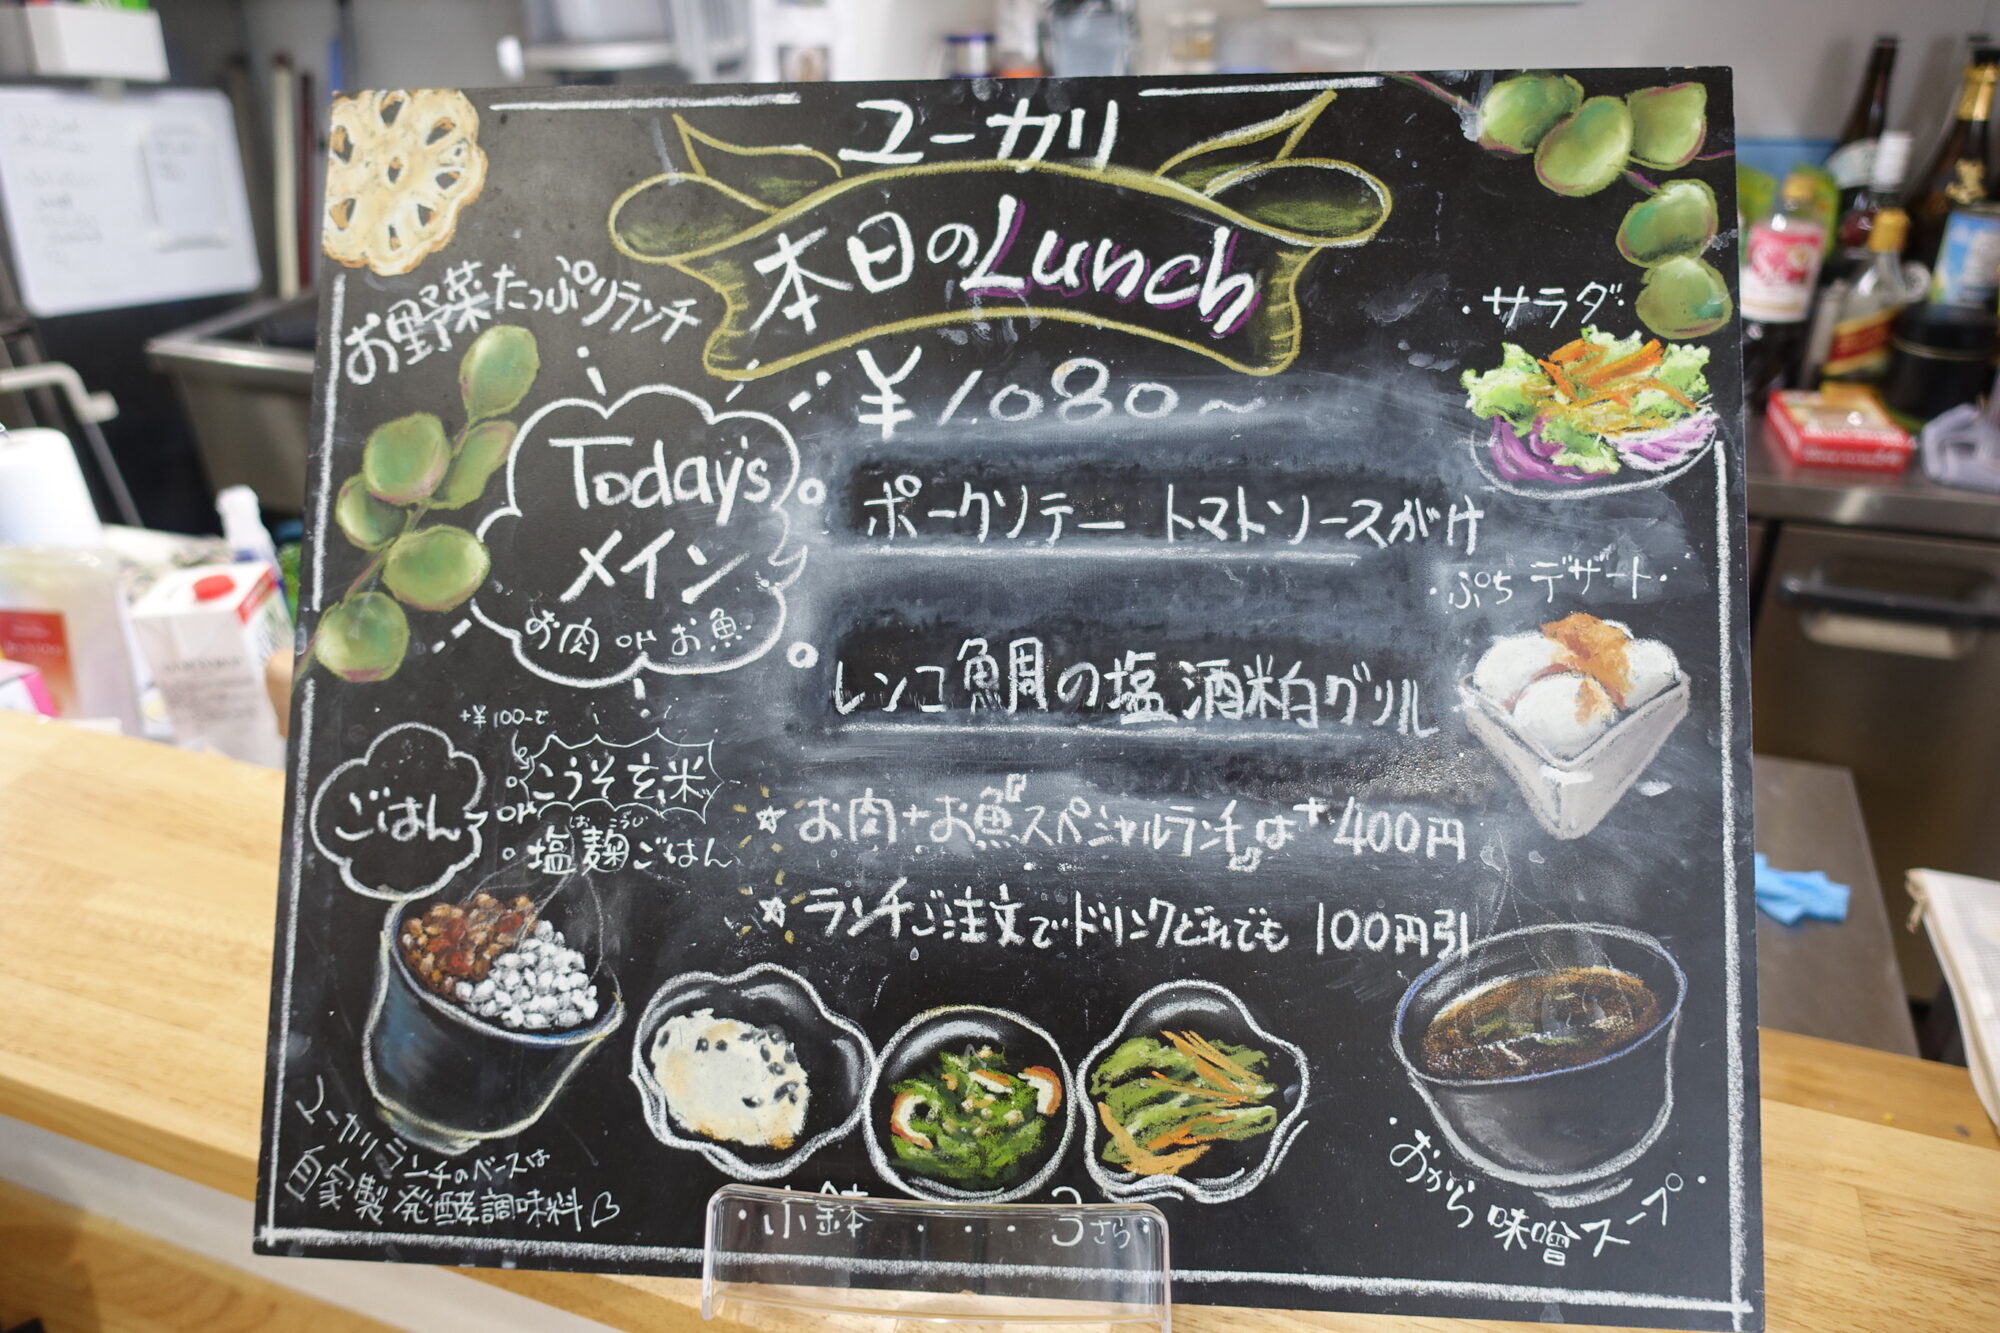 ユーカリ
本日のLunch
お野菜たっぷりランチ
¥1080~
・サラダ・
Today's
メイン
お肉 or お魚
ポークソテー トマトソースがけ
レンコ鯛の塩酒粕グリル
・ぷちデザート・
+¥100-で
ごはん
こうそ玄米
or
しおこうじ
塩麹ごはん
☆お肉+お魚スペシャルランチは+400円
☆ランチご注文でドリンクどれでも100円引
ユーカリランチのベースは
自家製発酵調味料♡
・小鉢・・・・3さら・
・おから味噌スープ・